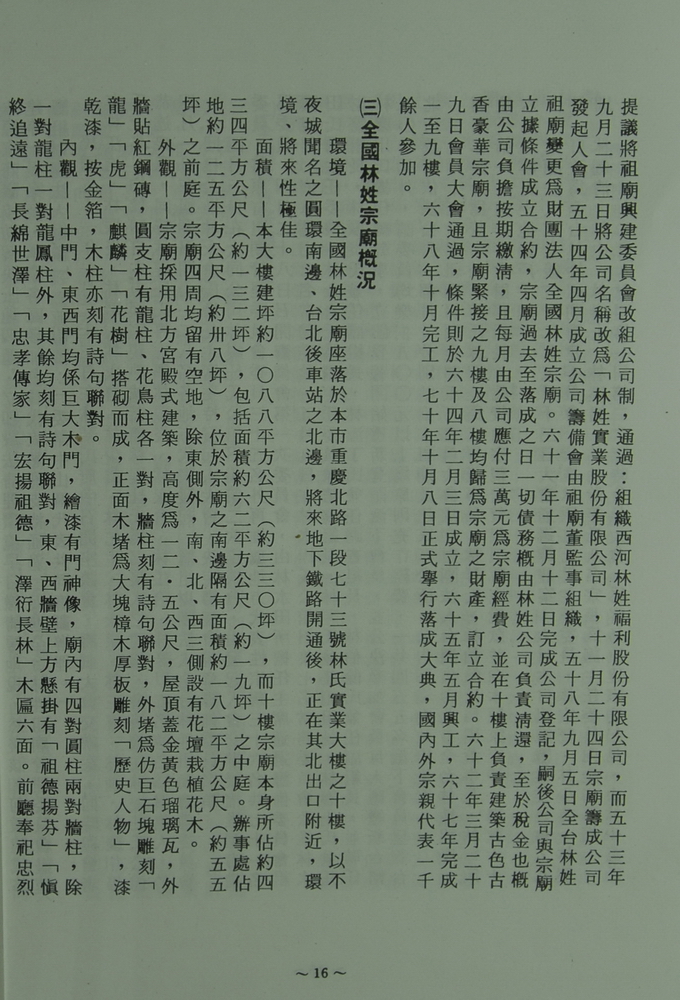 提議將祖廟興建委員會改組公司制，通過：組織西河林姓福利股份有限公司，而五十三年
九月二十三日將公司名稱改爲「林姓實業股份有限公司」，十一月二十四日宗廟籌成公司
發起人會，五十四年四月成立公司籌備會由祖廟董監事組織，五十八年九月五日全台林姓
祖廟變更爲財團法人全國林姓宗廟。六十一年十二月十二日完成公司登記，嗣後公司與宗廟
立據條件成立合約，宗廟過去至落成之日一切債務概由林姓公司負責淸還，至於稅金也概
由公司負擔按期繳淸，且每月由公司應付三萬元爲宗廟經費，並在十樓上負責建築古色古
香豪華宗廟，且宗廟緊接之九樓及八樓均歸爲宗廟之財產，訂立合約。六十二年三月二十
九日會員大會通過，條件則於六十四年二月三日成立，六十五年五月興工，六十七年完成
一至九樓，六十八年十月完工，七十年十月八日正式舉行落成大典，國內外宗親代表一千
餘人參加。
㈢全國林姓宗廟概況
環境——全國林姓宗廟座落於本市重慶北路一段七十三號林氏實業大樓之十樓，以不
夜城聞名之圓環南邊、台北後車站之北邊，將來地下鐵路開通後，正在其北出口附近，環
境、將來性極佳。
面積——本大樓建坪約一〇八八平方公尺（約三三〇坪），而十樓宗廟本身所佔約四
三四平方公尺（約一三二坪），包括面積約六二平方公尺（約一九坪）之中庭。辦事處佔
地約一二五平方公尺（約卅八坪），位於宗廟之南邊隔有面積約一八二平方公尺（約五五
坪）之前庭。宗廟四周均留有空地，除東側外，南、北、西三側設有花壇栽植花木。
外觀——宗廟採用北方宮殿式建築，高度爲一二·五公尺，屋頂蓋金黃色瑠璃瓦，外
牆貼紅鋼磚，圓支柱有龍柱、花鳥柱各一對，牆柱刻有詩句聯對，外堵爲仿巨石塊雕刻「
龍」「虎」「麒麟」「花樹」搭砌而成，正面木堵爲大塊樟木厚板雕刻「歷史人物」，漆
乾漆，按金箔，木柱亦刻有詩句聯對。
內觀——中門、東西門均係巨大木門，繪漆有門神像，廟內有四對圓柱兩對牆柱，除
一對龍柱一對龍鳳柱外，其餘均刻有詩句聯對，東、西牆壁上方懸掛有「祖德揚芬」「愼
終追遠」「長綿世澤」「忠孝傳家」「宏揚祖德」「澤衍長林」木匾六面。前廳奉祀忠烈
～16～